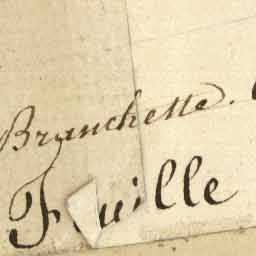 Branchette.
Feuille